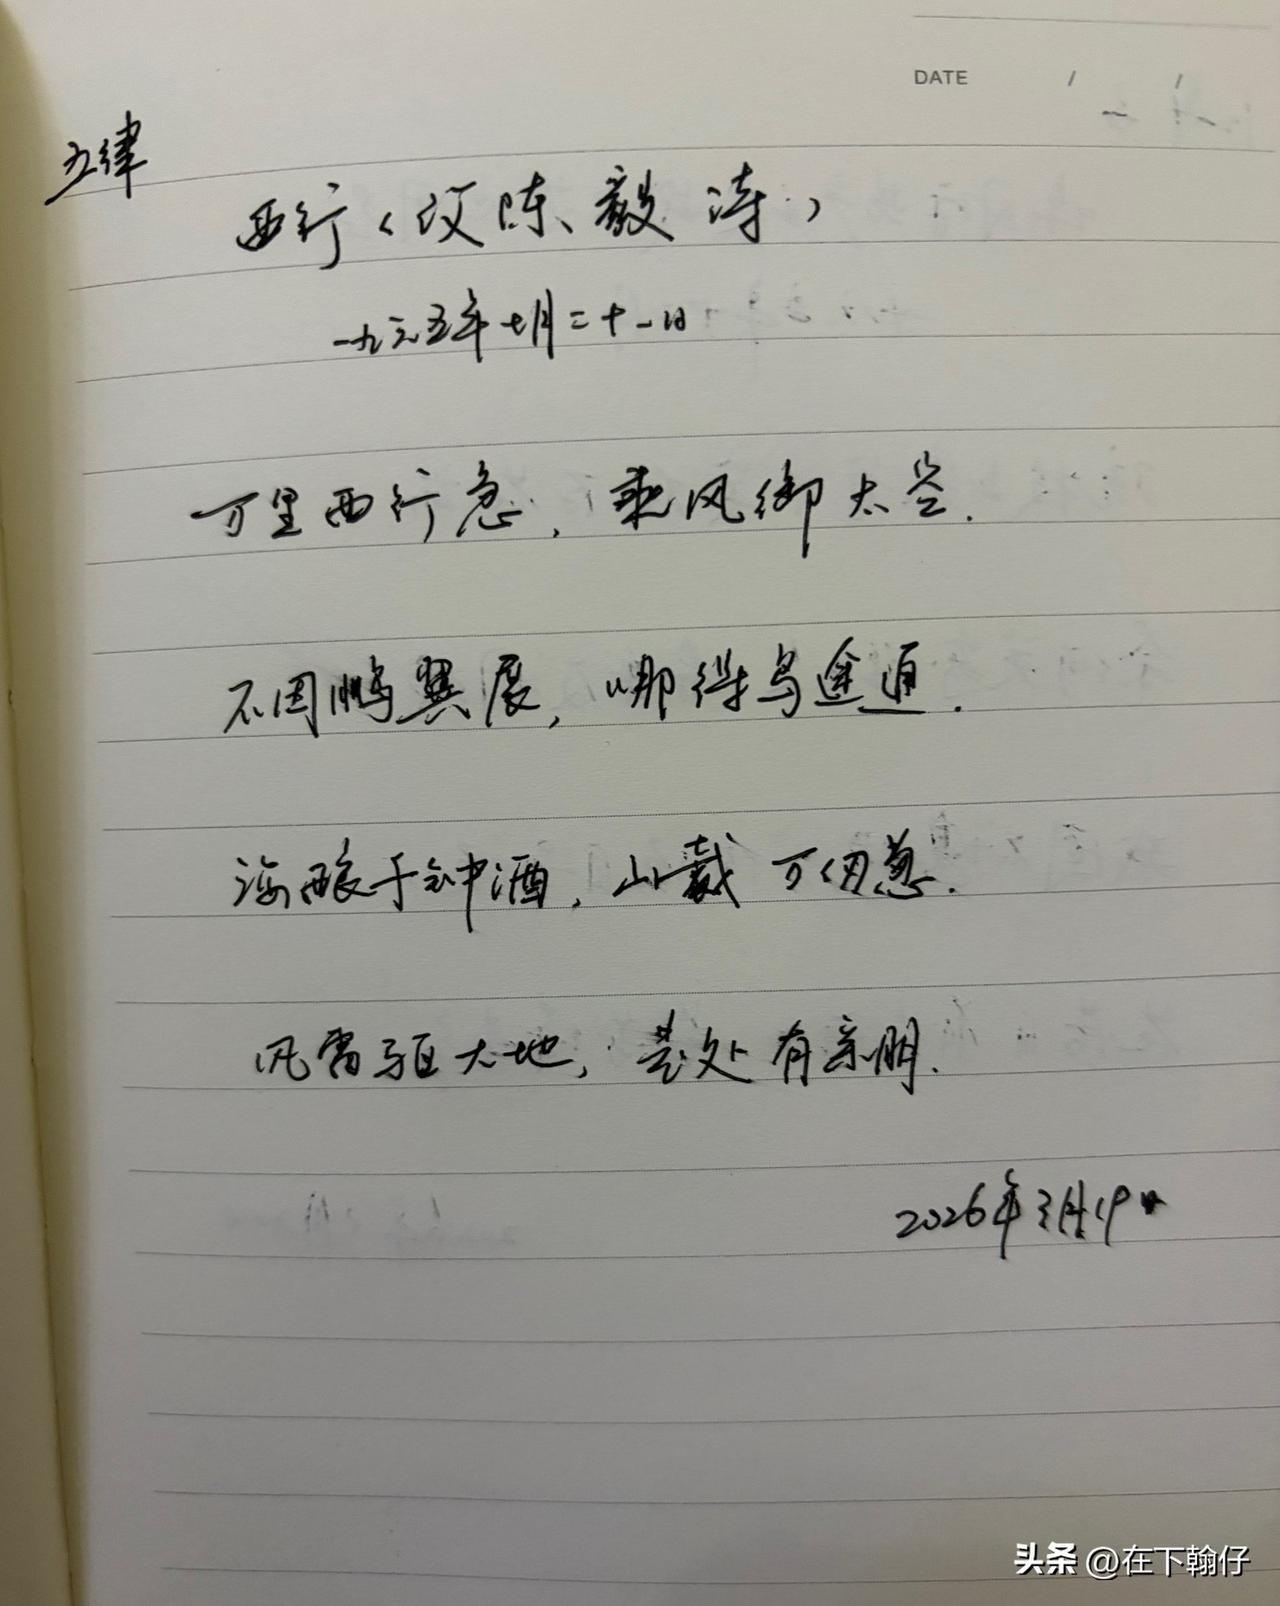 DATE / /
五律
西行（改陈毅诗）
一九六五年七月二十一日
万里西行急，乘风御太空．
不因鹏翼展，哪得鸟途通．
海酿千钟酒，山裁万仞葱．
风雷驱大地，是处有亲朋．
2026年3月19日
头条 @在下翰仔